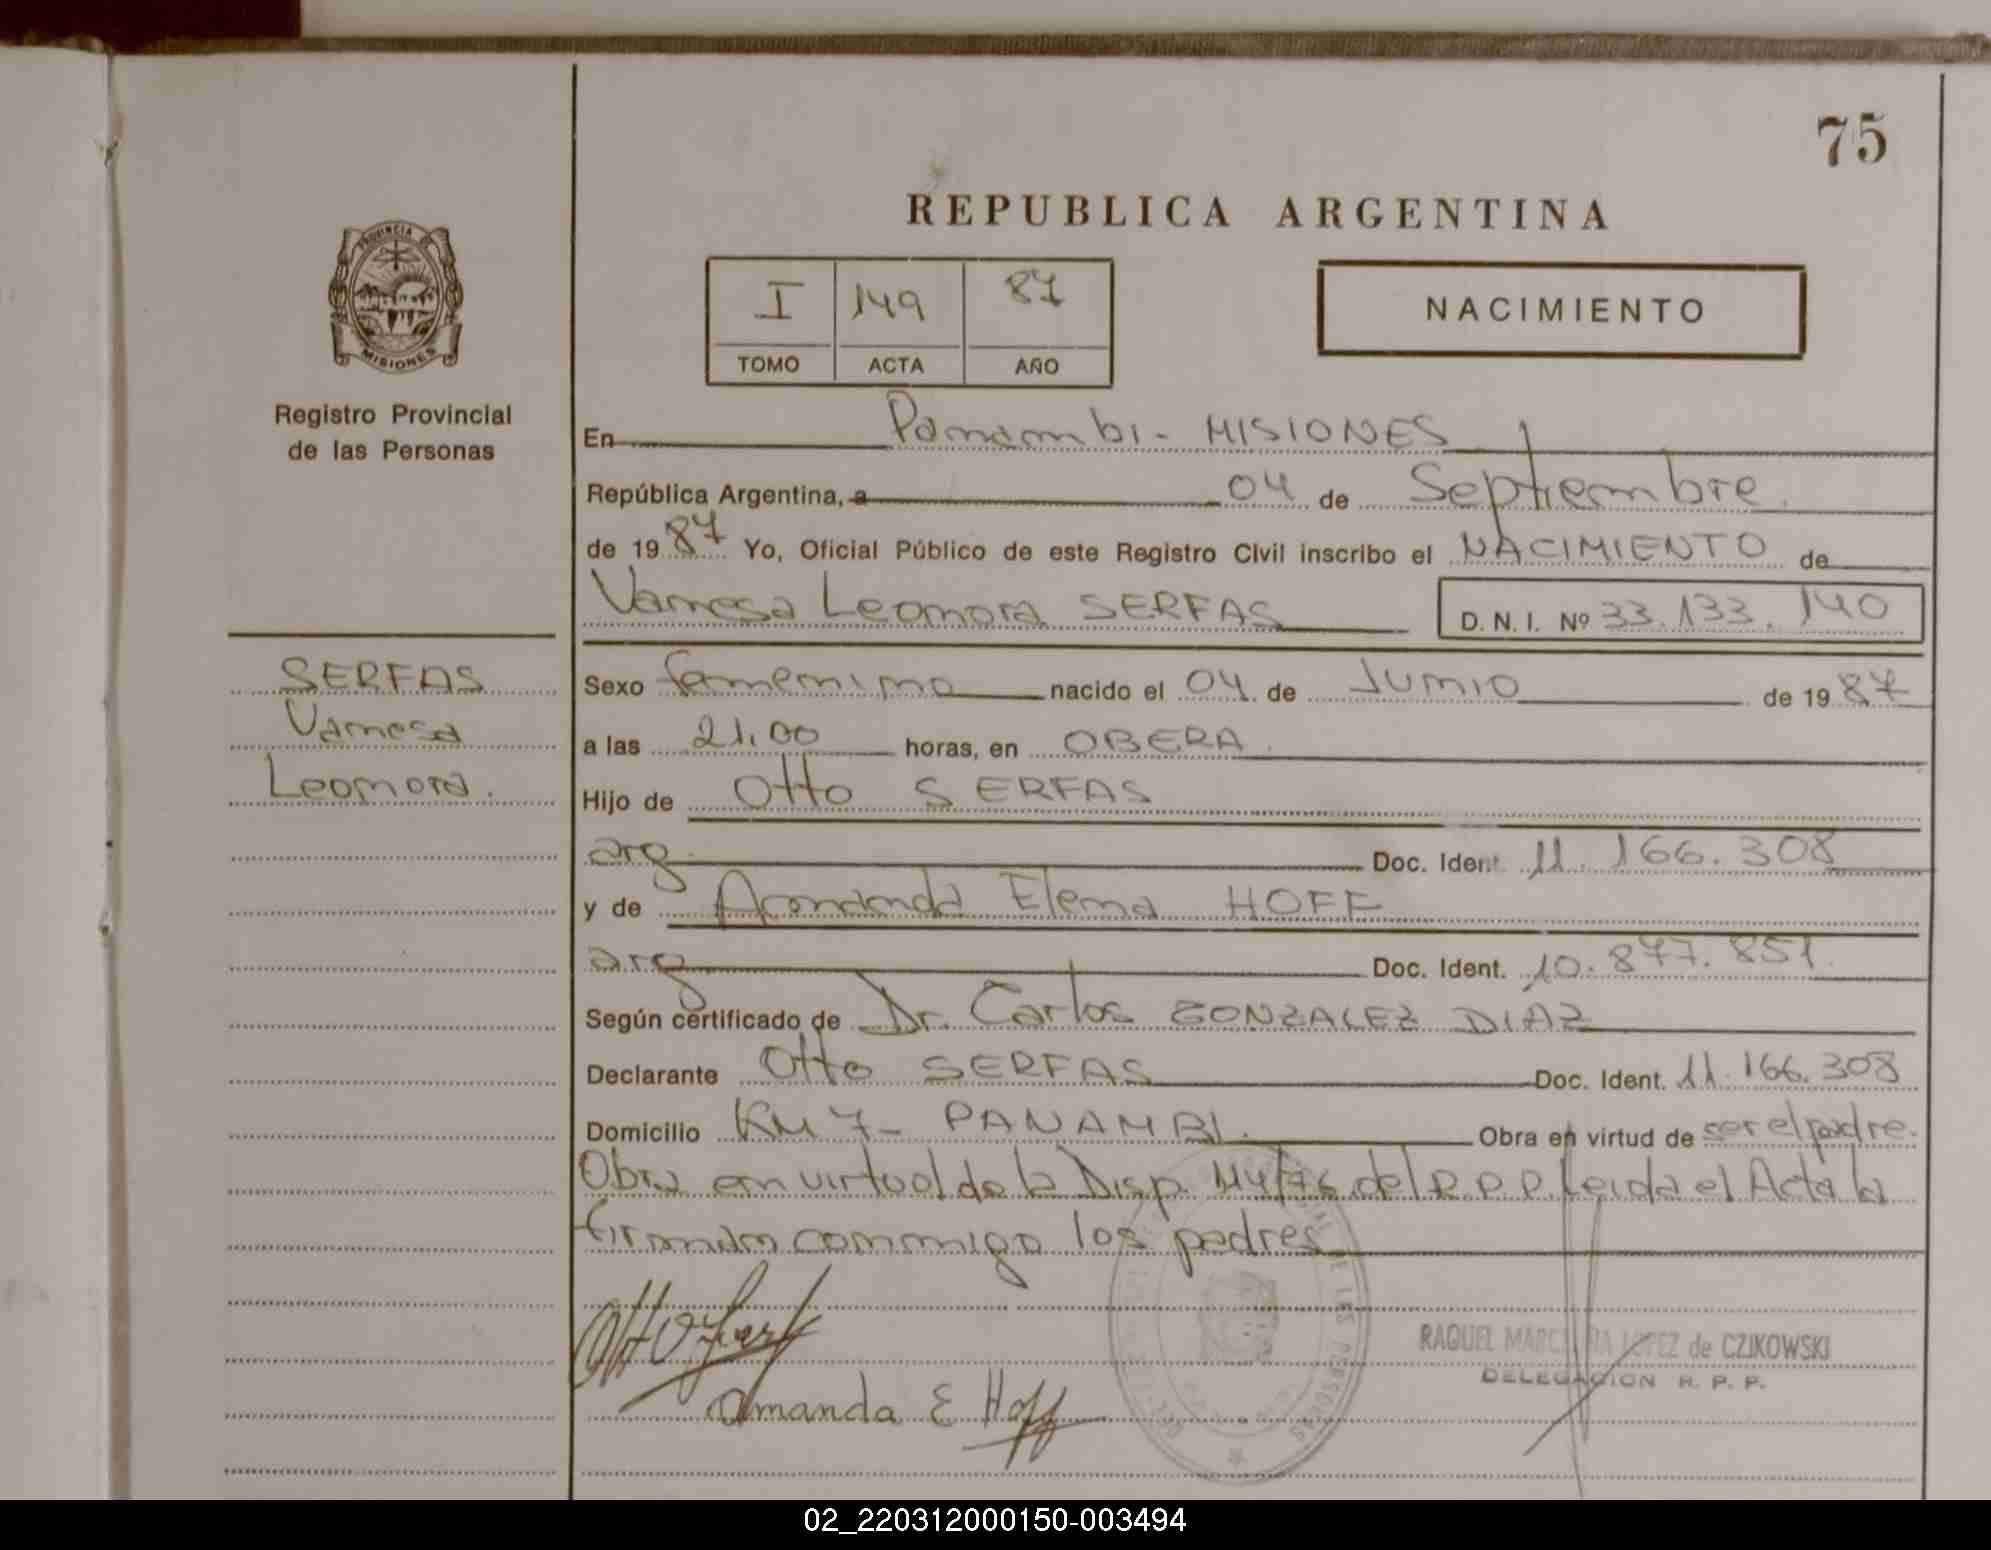 75
REPUBLICA ARGENTINA
PROVINCIA DE
MISIONES
Registro Provincial
de las Personas
I 149 87
TOMO ACTA AÑO
NACIMIENTO
En Panambi - MISIONES
República Argentina, a 04 de Septiembre
de 1987 Yo, Oficial Público de este Registro Civil inscribo el NACIMIENTO de
Vanesa Leonora SERFAS D. N. I. Nº 33.133.140
SERFAS
Vanesa
Leonora.
Sexo femenino nacido el 04 de Junio de 1987
a las 21,00 horas, en OBERA.
Hijo de Otto SERFAS
arg. Doc. Ident. 11.166.308
y de Amanda Elena HOFF
arg Doc. Ident. 10.877.851.
Según certificado de Dr. Carlos GONZALEZ DIAZ
Declarante Otto SERFAS Doc. Ident. 11.166.308
Domicilio KM 7 - PANAMBI. Obra en virtud de ser el padre.
Obra en virtud de la Disp. 114/76 del R.P.P. Leida el Acta la
firman conmigo los padres
amanda E Hoff
RAQUEL MARCELINA LOPEZ de CZIKOWSKI
DELEGACION R. P. P.
02_220312000150-003494